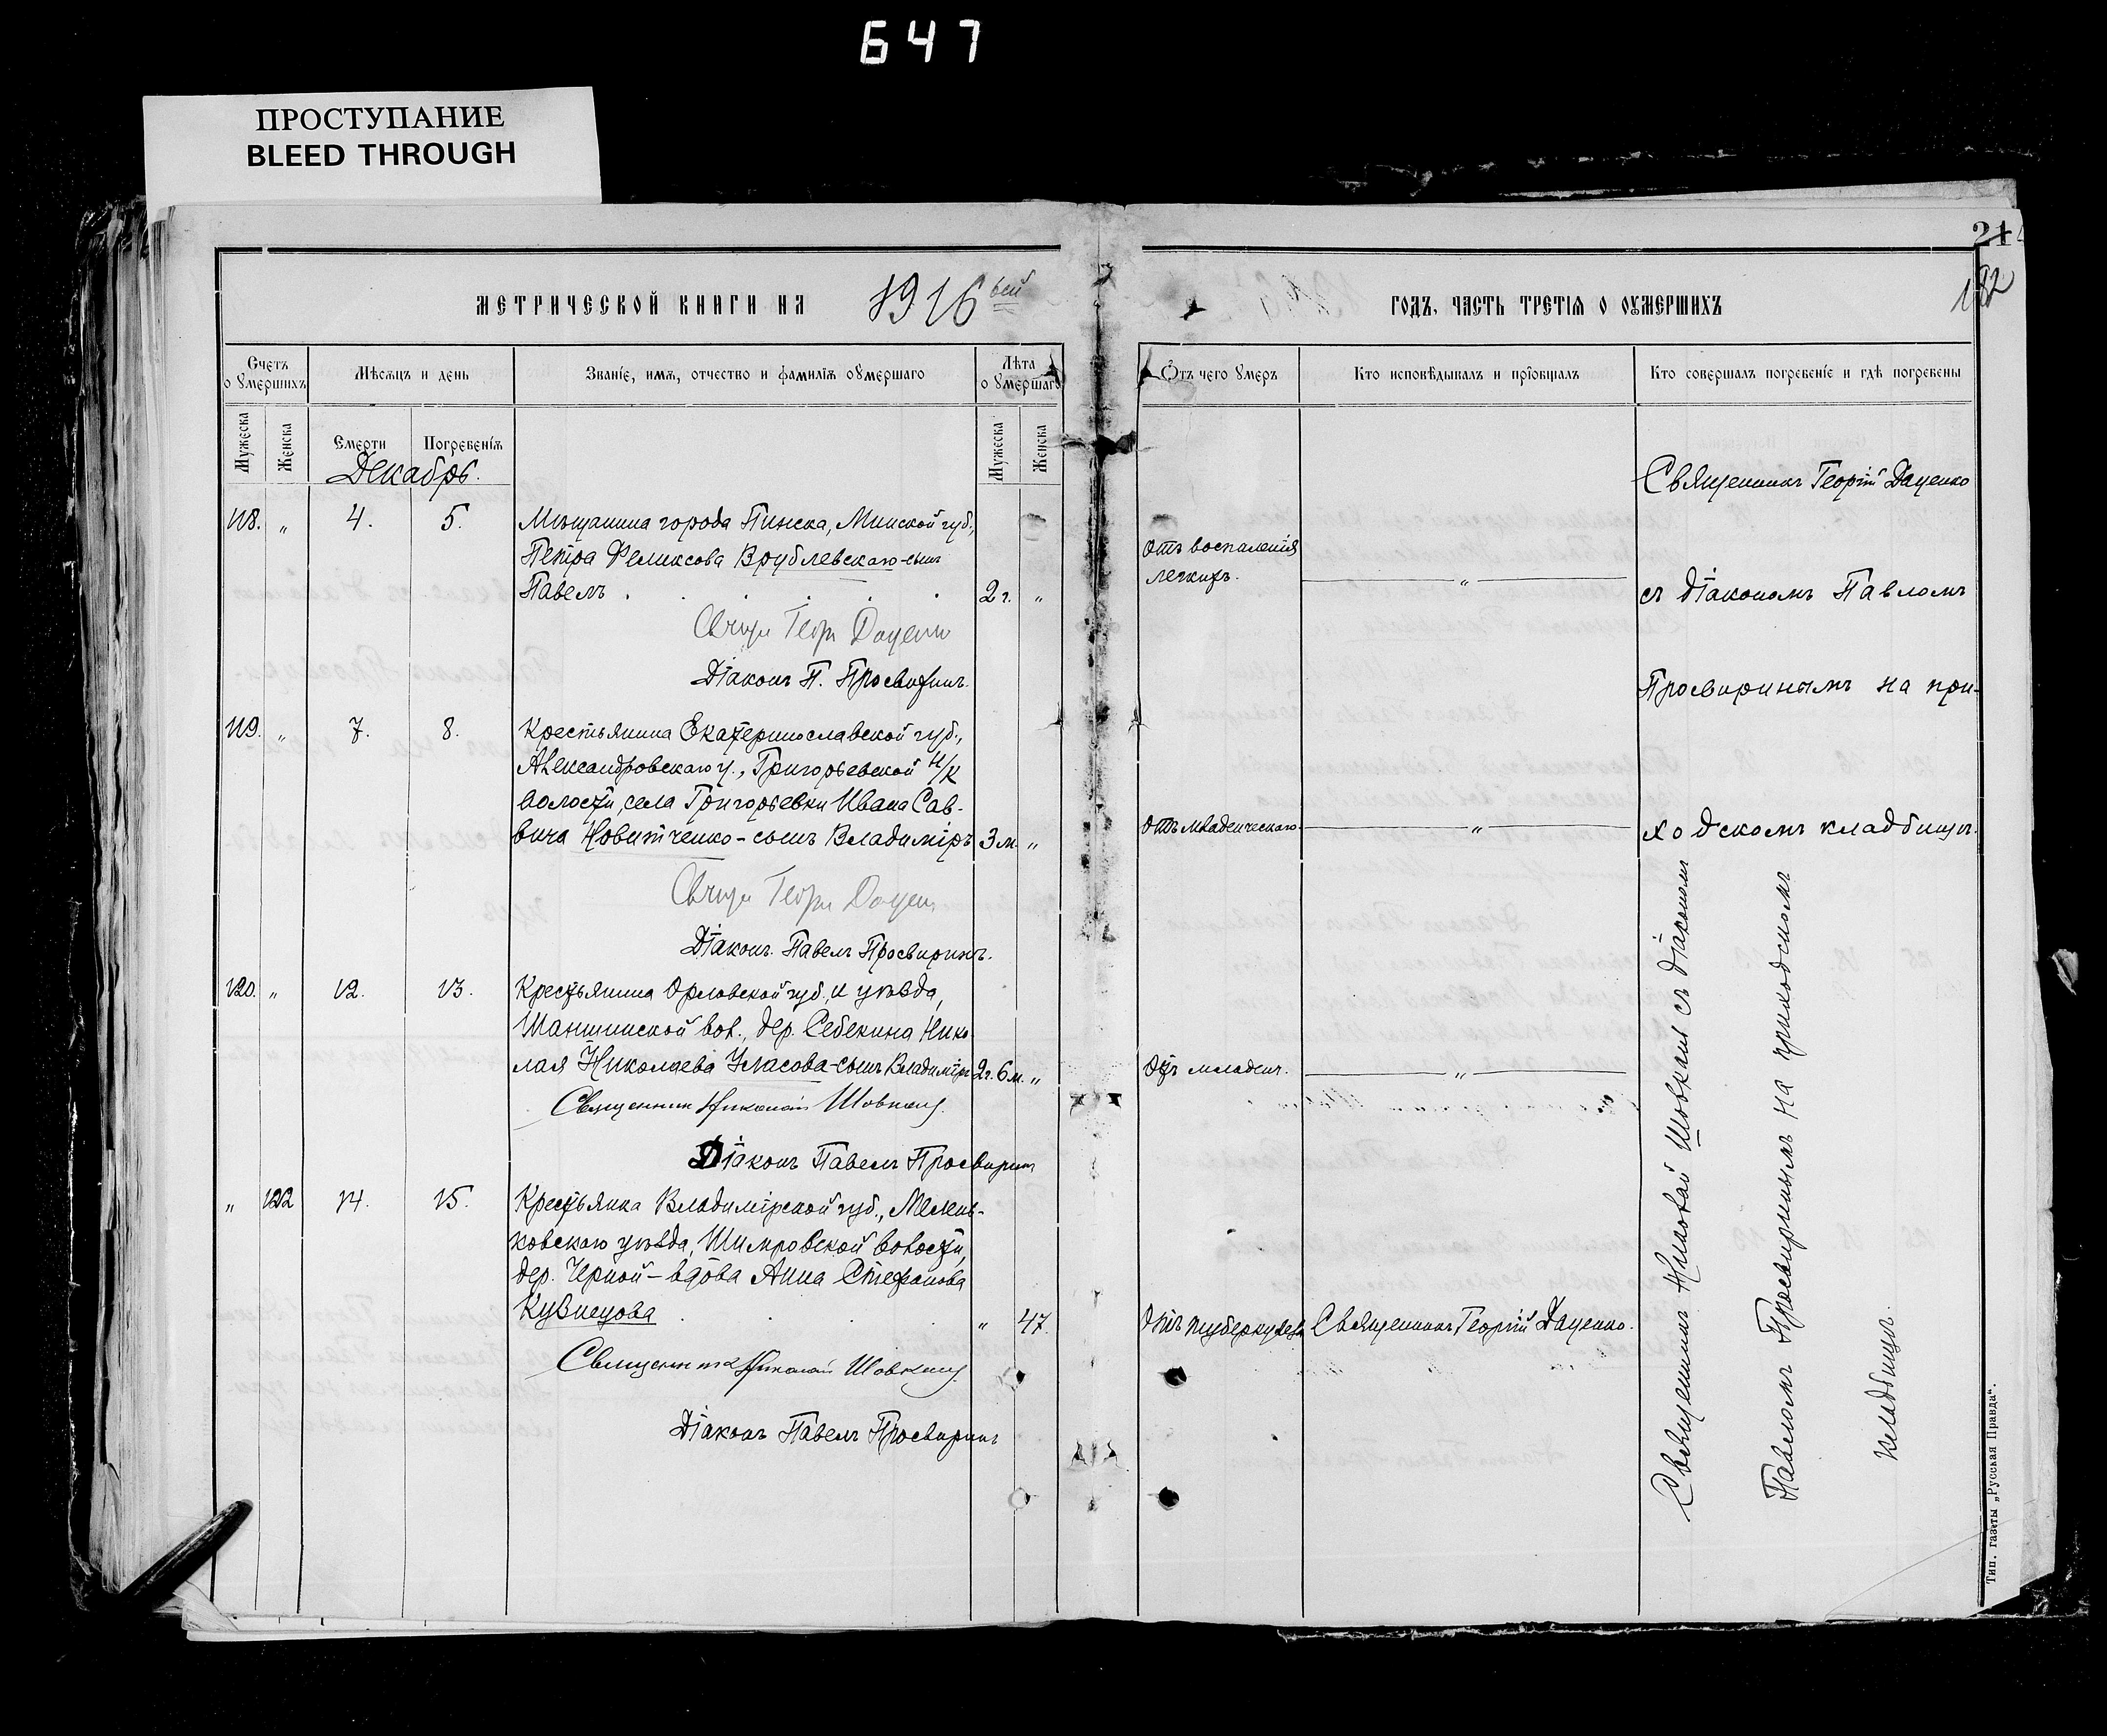 647
ПРОСТУПАНИЕ
BLEED THROUGH
214
182
МЕТРИЧЕСКОЙ КНИГИ НА 1916 ый
ГОДЪ, ЧАСТЬ ТРЕТІЯ О ОУМЕРШИХЪ
Счетъ о умершихъ
Мѣсяцъ и день
Званіе, имя, отчество и фамилія оумершаго
Лѣта о умершаго
Отъ чего умеръ
Кто исповѣдывалъ и пріобщалъ
Кто совершалъ погребеніе и гдѣ погребены
Мужеска
Женска
Смерти
Погребенія
Мужеска
Женска
Декабрь.
118. " 4. 5. Мѣщанина города Пинска, Минской губ.,
Петра Феликсова Врублевскаго-сынъ
Павелъ . . . . . 2 г. "
отъ воспаленія
легкихъ. "
Георг Даценко
Діаконъ П. Просвиринъ.
119. " 7. 8. Крестьянина Екатеринославской губ.,
Александровскаго у., Григорьевской н/к
волости, села Григорьевки Ивана Сав-
вича Новитченко-сынъ Владиміръ 3 м. "
отъ младенческаго "
Георг
Діаконъ Павелъ Просвиринъ.
120. " 12. 13. Крестьянина Орловской губ. и уѣзда,
Шаншинской вол., дер. Себекина Нико-
лая Николаева Уласова-сынъ Владиміръ 2 г. 6 м. "
отъ младенч. "
Священник Николай Шовкопл
Діаконъ Павелъ Просвиринъ
" 122 14. 15. Крестьянка Владимірской губ., Мелен-
ковскаго уѣзда, волости,
дер. Черной-вдова Анна Стефанова
Кузнецова . . . " 47.
отъ туберкулеза Священникъ Георгій Даценко.
Священник Николай
Діаконъ Павелъ Просвиринъ
Священникъ Георгій Даценко
съ Діакономъ Павломъ
Просвиринымъ на при-
ходскомъ кладбищѣ.
Священникъ Николай съ діакономъ
Павломъ Просвиринымъ на приходскомъ
кладбищѣ.
Тип. газеты „Русская Правда“.